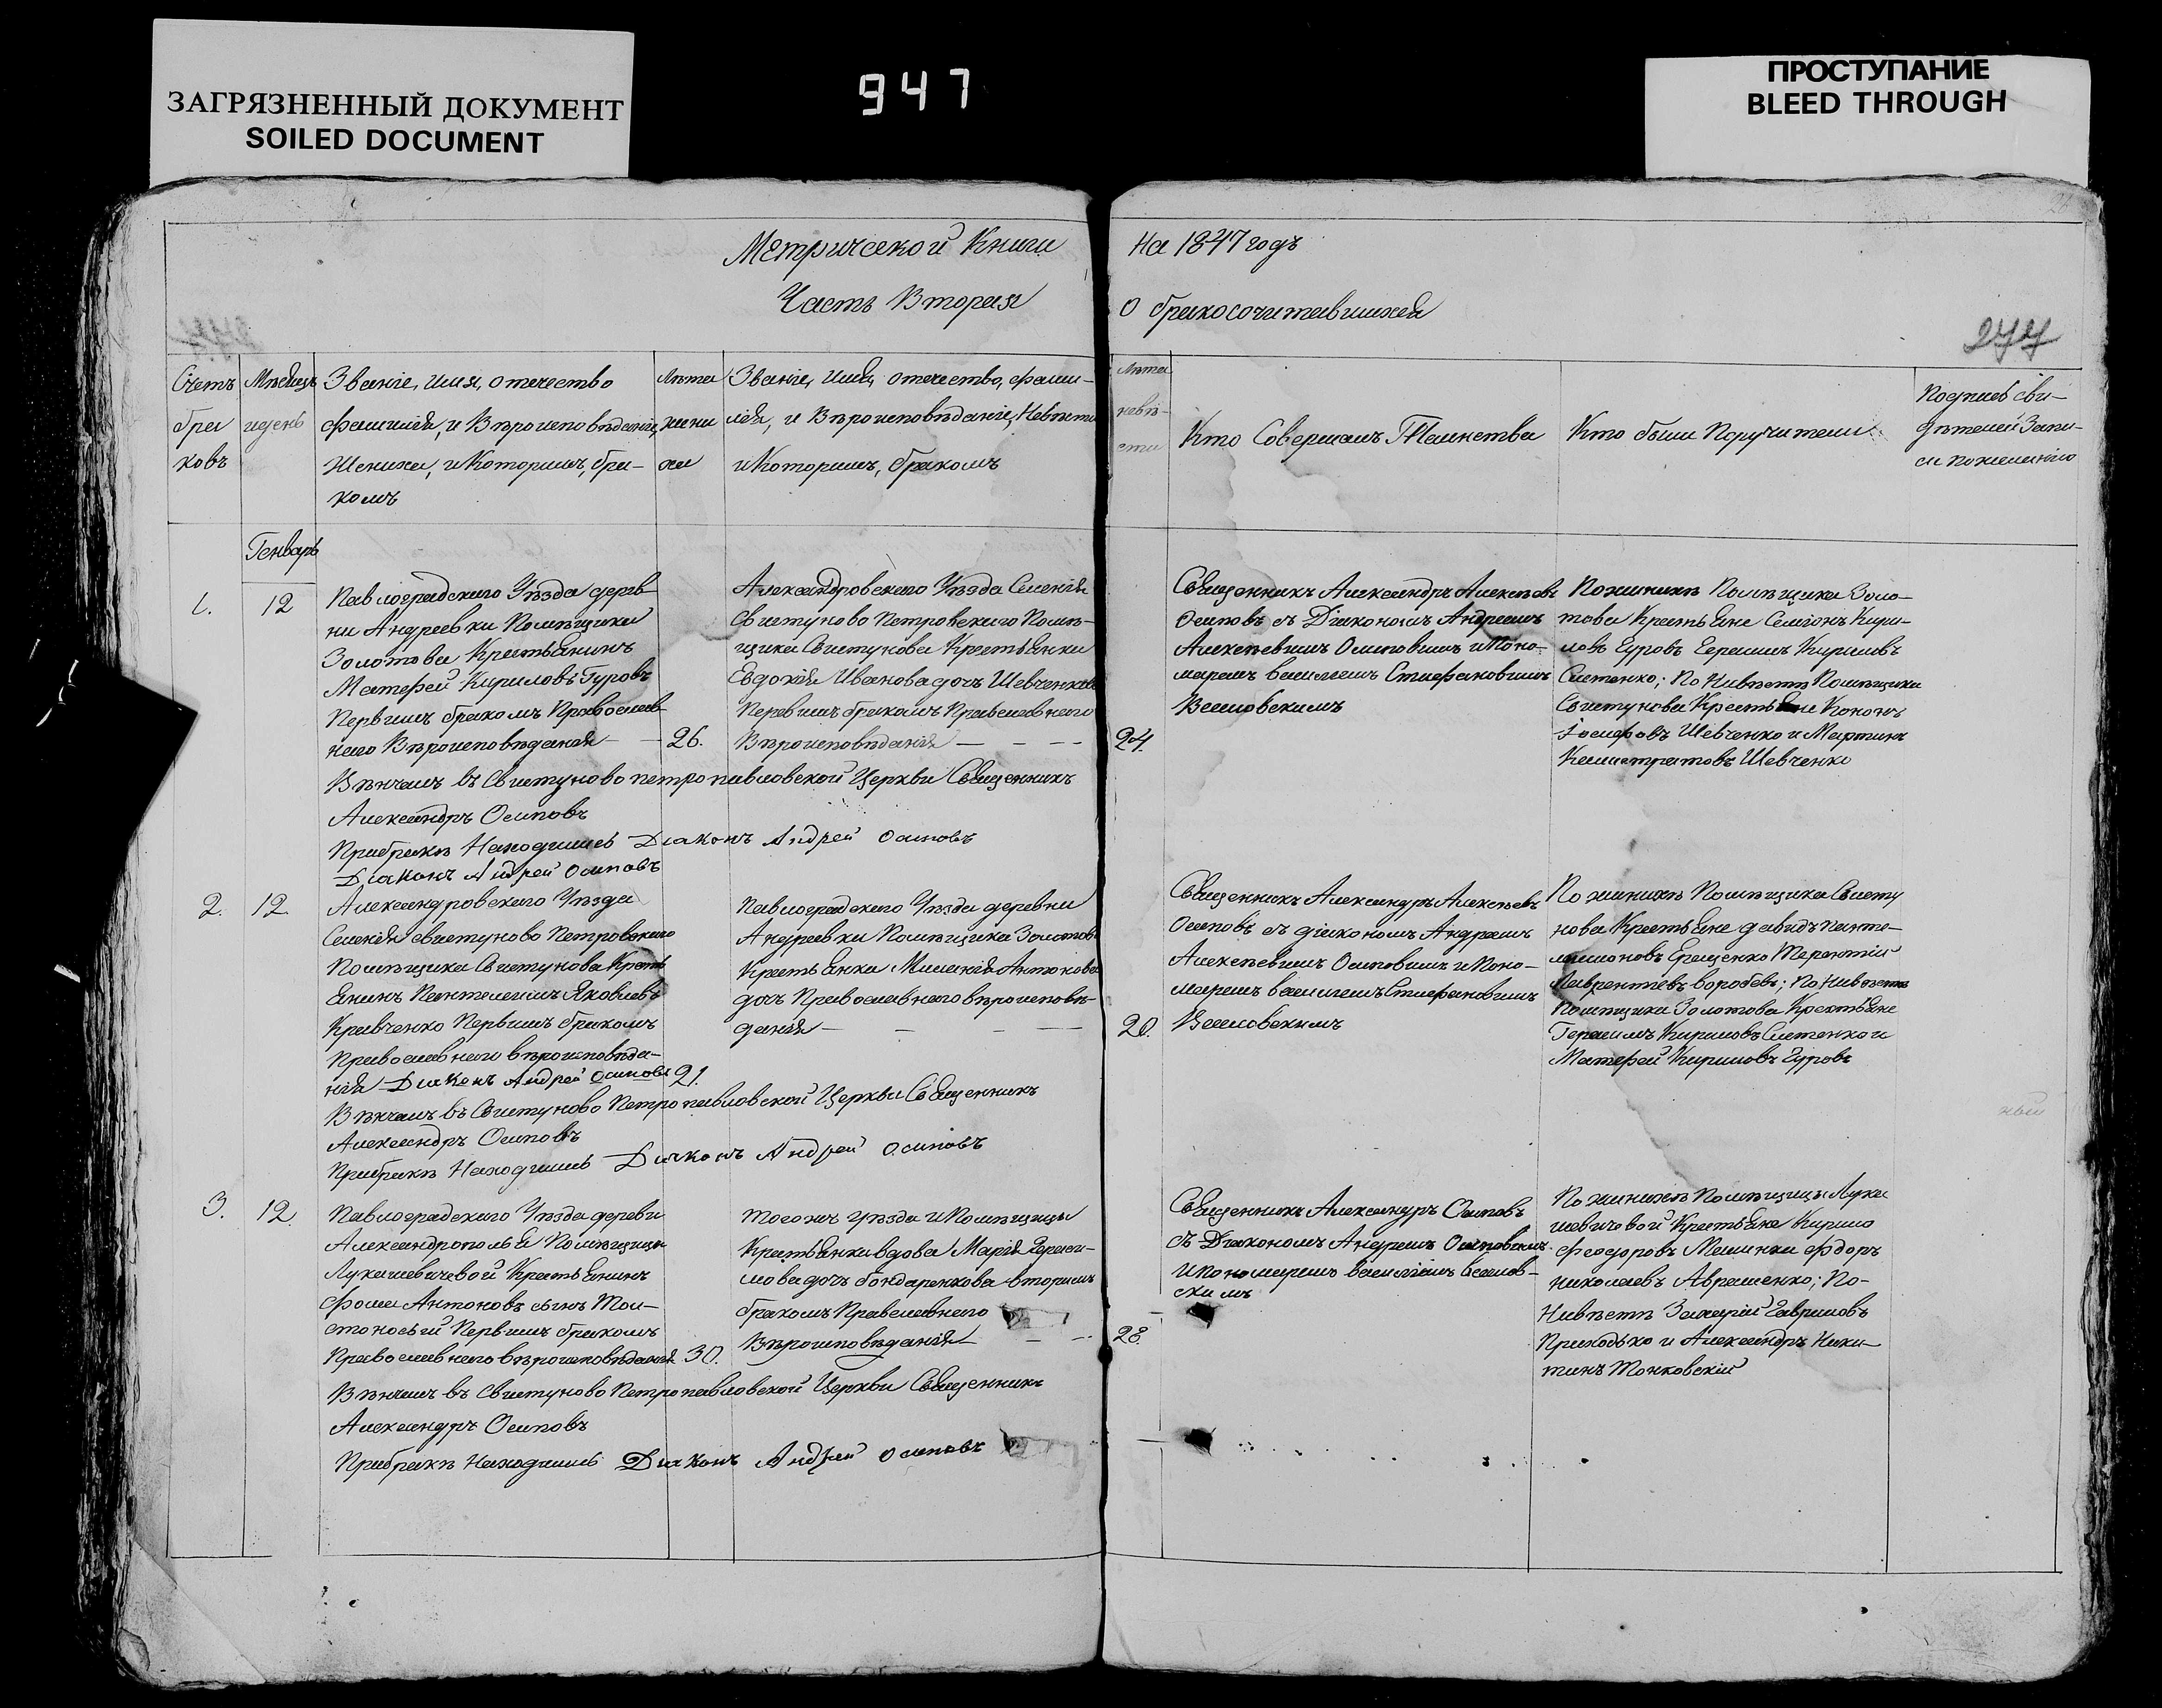 ЗАГРЯЗНЕННЫЙ ДОКУМЕНТ
SOILED DOCUMENT
947
ПРОСТУПАНИЕ
BLEED THROUGH
Метрической Книги
На 1847 годъ
Часть Вторая
О бракосочитавшихся
277
Счетъ
бра
ковъ
Мѣсяцъ
идень
Званіе, имя, отечество
фамилія, и Вѣроисповѣданіе,
Жениха, и Которимъ, бра-
комъ
Лѣта
жени
ха
Званіе, имя, отечество, фами-
лія, и Вѣроисповѣданіе, Невѣсти
и Которимъ, бракомъ
Лѣта
невѣ-
сти
Кто Совершалъ Таинства
Кто были Поручители
Подписъ сви-
дѣтелей Запи-
си пожеланію
Генварь
1.
12
Павлоградского Уѣзда дерев
ни Андреевки Помѣщика
Золотова Крестьянинъ
Матфей Кириловъ Гуровъ
Первимъ бракомъ Православ
наго Вѣроисповѣданія — —
26.
Александровского Уѣзда Селенія
Свистуново Петровского Помѣ-
щика Свистунова Крестьянка
Евдокія Иванова дочъ Шевченкова
Первимъ бракомъ Православнаго
Вѣроисповѣданія — - - --
24.
Священникъ Александръ Алексѣевъ
Осиповъ съ Діакономъ Андреемъ
Алексѣевимъ Осиповимъ и Поно-
маремъ Василиемъ Стефановимъ
Веселовскимъ
Пожинихѣ Помѣщика Золо-
това Крестьяне Семіонъ Кири-
ловъ Гуровъ Герасимъ Кириловъ
Сметенко; По Нивѣстѣ Помѣщика
Свистунова Крестьяне Кононъ
Іосифовъ Шевченко и Мартинъ
Калистратовъ Шевченко
Вѣнчалъ въ Свистуново петропавловской Церкви Священникъ
Александръ Осиповъ
Прибракѣ Находились Діаконъ Андрей Осиповъ
Діаконъ Андрей Осиповъ
2.
12.
Александровского Уѣзда
Селенія Свистуново Петровского
Помѣщика Свистунова Кресть
янинъ Пантелеимъ Яковлевъ
Кравченко Первимъ бракомъ
Православнаго вѣроисповѣда-
нія Діаконъ Андрей Осиповъ
21.
Павлоградского Уѣзда деревни
Андреевки Помѣщика Золотова
Крестьянка Миланія Антонова
дочъ Православнаго вѣроисповѣ-
данія — - - —
20.
Священникъ Александръ Алексѣевъ
Осиповъ съ діакономъ Андреемъ
Алексѣевимъ Осиповимъ и Поно-
маремъ Василиемъ Стефановимъ
Веселовскимъ
По жинихѣ Помѣщика Свисту
нова Крестьяне давидъ панте-
лимоновъ Ерещенко Терентій
Лаврентіевъ воробевъ; По Нивѣстѣ
Помѣщика Золотова Крестьяне
Герасимъ Кириловъ Сметенко и
Матфей Кириловъ Гуровъ
Вѣнчалъ въ Свистуново Петропавловской Церкви Священникъ
Александръ Осиповъ
Прибракѣ Находились Діаконъ Андрей Осиповъ
3.
12.
Павлоградского Уѣзда деревн
Александрополья Помѣщици
Лукашевичевой Крестьянинъ
Фома Антоновъ синъ Тол-
стоносый Первимъ бракомъ
Православнаго вѣроисповѣданія
30.
тогожъ уѣзда и Помѣщици
Крестьянка вдова Марія Гераси-
мова дочъ бондаренкова вторимъ
бракомъ Православнаго
Вѣроисповѣданія — - --
28.
Священникъ Александръ Осиповъ
съ Діакономъ Андреемъ Осиповимъ
и пономаремъ василіемъ Веселов-
скимъ
По жинихѣ Помѣщици Лука
шевичовой Крестьяне Кирило
Феодоровъ Малинка Фдоръ
николаевъ Авраменко; По-
Нивѣстѣ Захарій Гавриловъ
Приходько и Александръ Ники-
тинъ Тонковскій
Вѣнчалъ въ Свистуново Петропавловской Церкви Священникъ
Александръ Осиповъ
Прибракѣ Находились Діаконъ Андрей Осиповъ